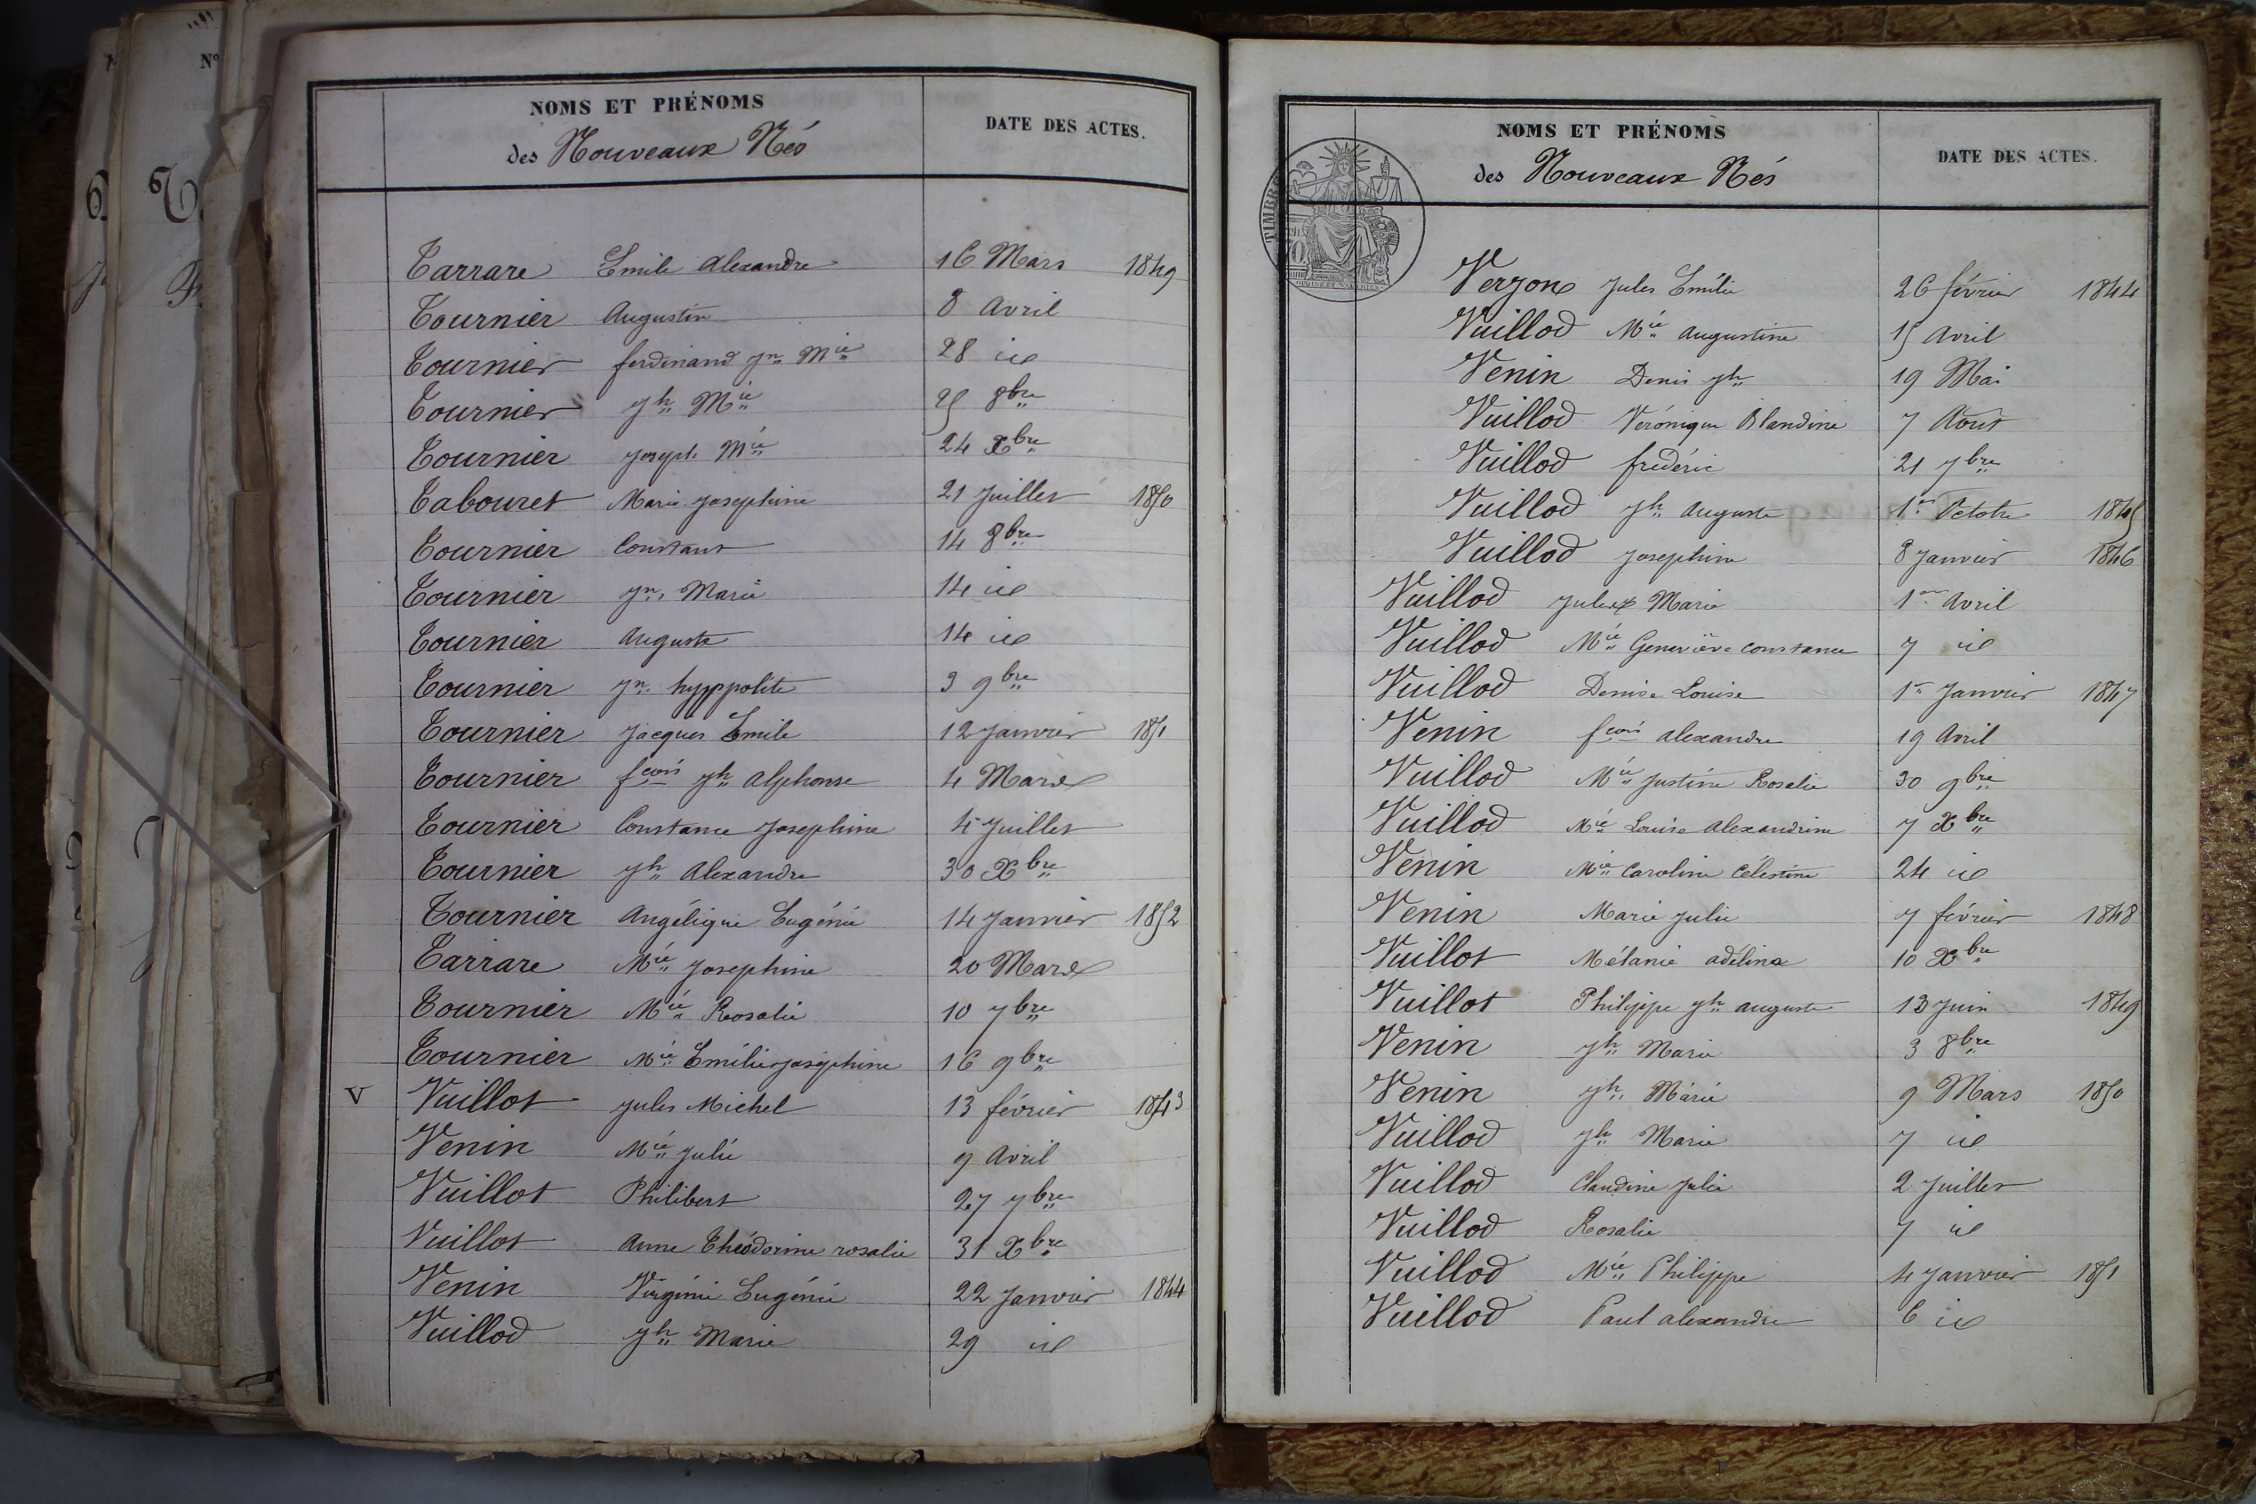 NOMS ET PRÉNOMS
des Nouveaux Nés
DATE DES ACTES.
Tarrare Emile Alexandre 16 Mars 1849
Tournier Augustin 8 Avril
Tournier ferdinand Jn Mie 28 id
Tournier Jh Mie 25 8bre
Tournier Joseph Mie 24 Xbre
Tabouret Marie Josephine 21 Juillet 1850
Tournier Constant 14 8bre
Tournier Jn Marie 14 id
Tournier Auguste 14 id
Tournier Jn hyppolite 3 9bre
Tournier Jacques Emile 12 Janvier 1851
Tournier fcois Jh Alphonse 4 Mars
Tournier Constance Josephine 4 Juillet
Tournier Jh Alexandre 30 Xbre
Tournier Angélique Eugénie 14 Janvier 1852
Tarrare Mie Josephine 20 Mars
Tournier Mie Rosalie 10 7bre
Tournier Mie Emélie Joséphine 16 9bre
V Vuillot Jules Michel 13 février 1843
Venin Mie Julie 9 Avril
Vuillot Philibert 27 7bre
Vuillot Anne Théodorine rosalie 31 Xbre
Venin Virginie Eugénie 22 Janvier 1844
Vuillod Jh Marie 29 id
NOMS ET PRÉNOMS
des Nouveaux Nés
DATE DES ACTES.
TIMBRE
Verjon Jules Emélie 26 février 1844
Vuillod Mie Augustine 15 Avril
Venin Denis Jh 19 Mai
Vuillod Véronique Blandine 7 Aout
Vuillod frédéric 21 7bre
Vuillod Jh Auguste 1er Octobre 1845
Vuillod Josephine 8 Janvier 1846
Vuillod Jules Marie 1er Avril
Vuillod Mie Geneviève Constance 7 id
Vuillod Denise Louise 1er Janvier 1847
Venin fcois alexandre 19 Avril
Vuillod Mie Justine Rosalie 30 9bre
Vuillod Mie Louise Alexandrine 7 Xbre
Venin Mie Caroline Célestine 24 id
Venin Marie Julie 7 février 1848
Vuillot Mélanie adélina 10 Xbre
Vuillot Philippe Jh auguste 13 Juin 1849
Venin Jh Marie 3 8bre
Venin Jh Marie 9 Mars 1850
Vuillod Jh Marie 7 id
Vuillod Claudine Julie 2 Juillet
Vuillod Rosalie 7 id
Vuillod Mie Philippe 4 Janvier 1851
Vuillod Paul alexandre 6 id